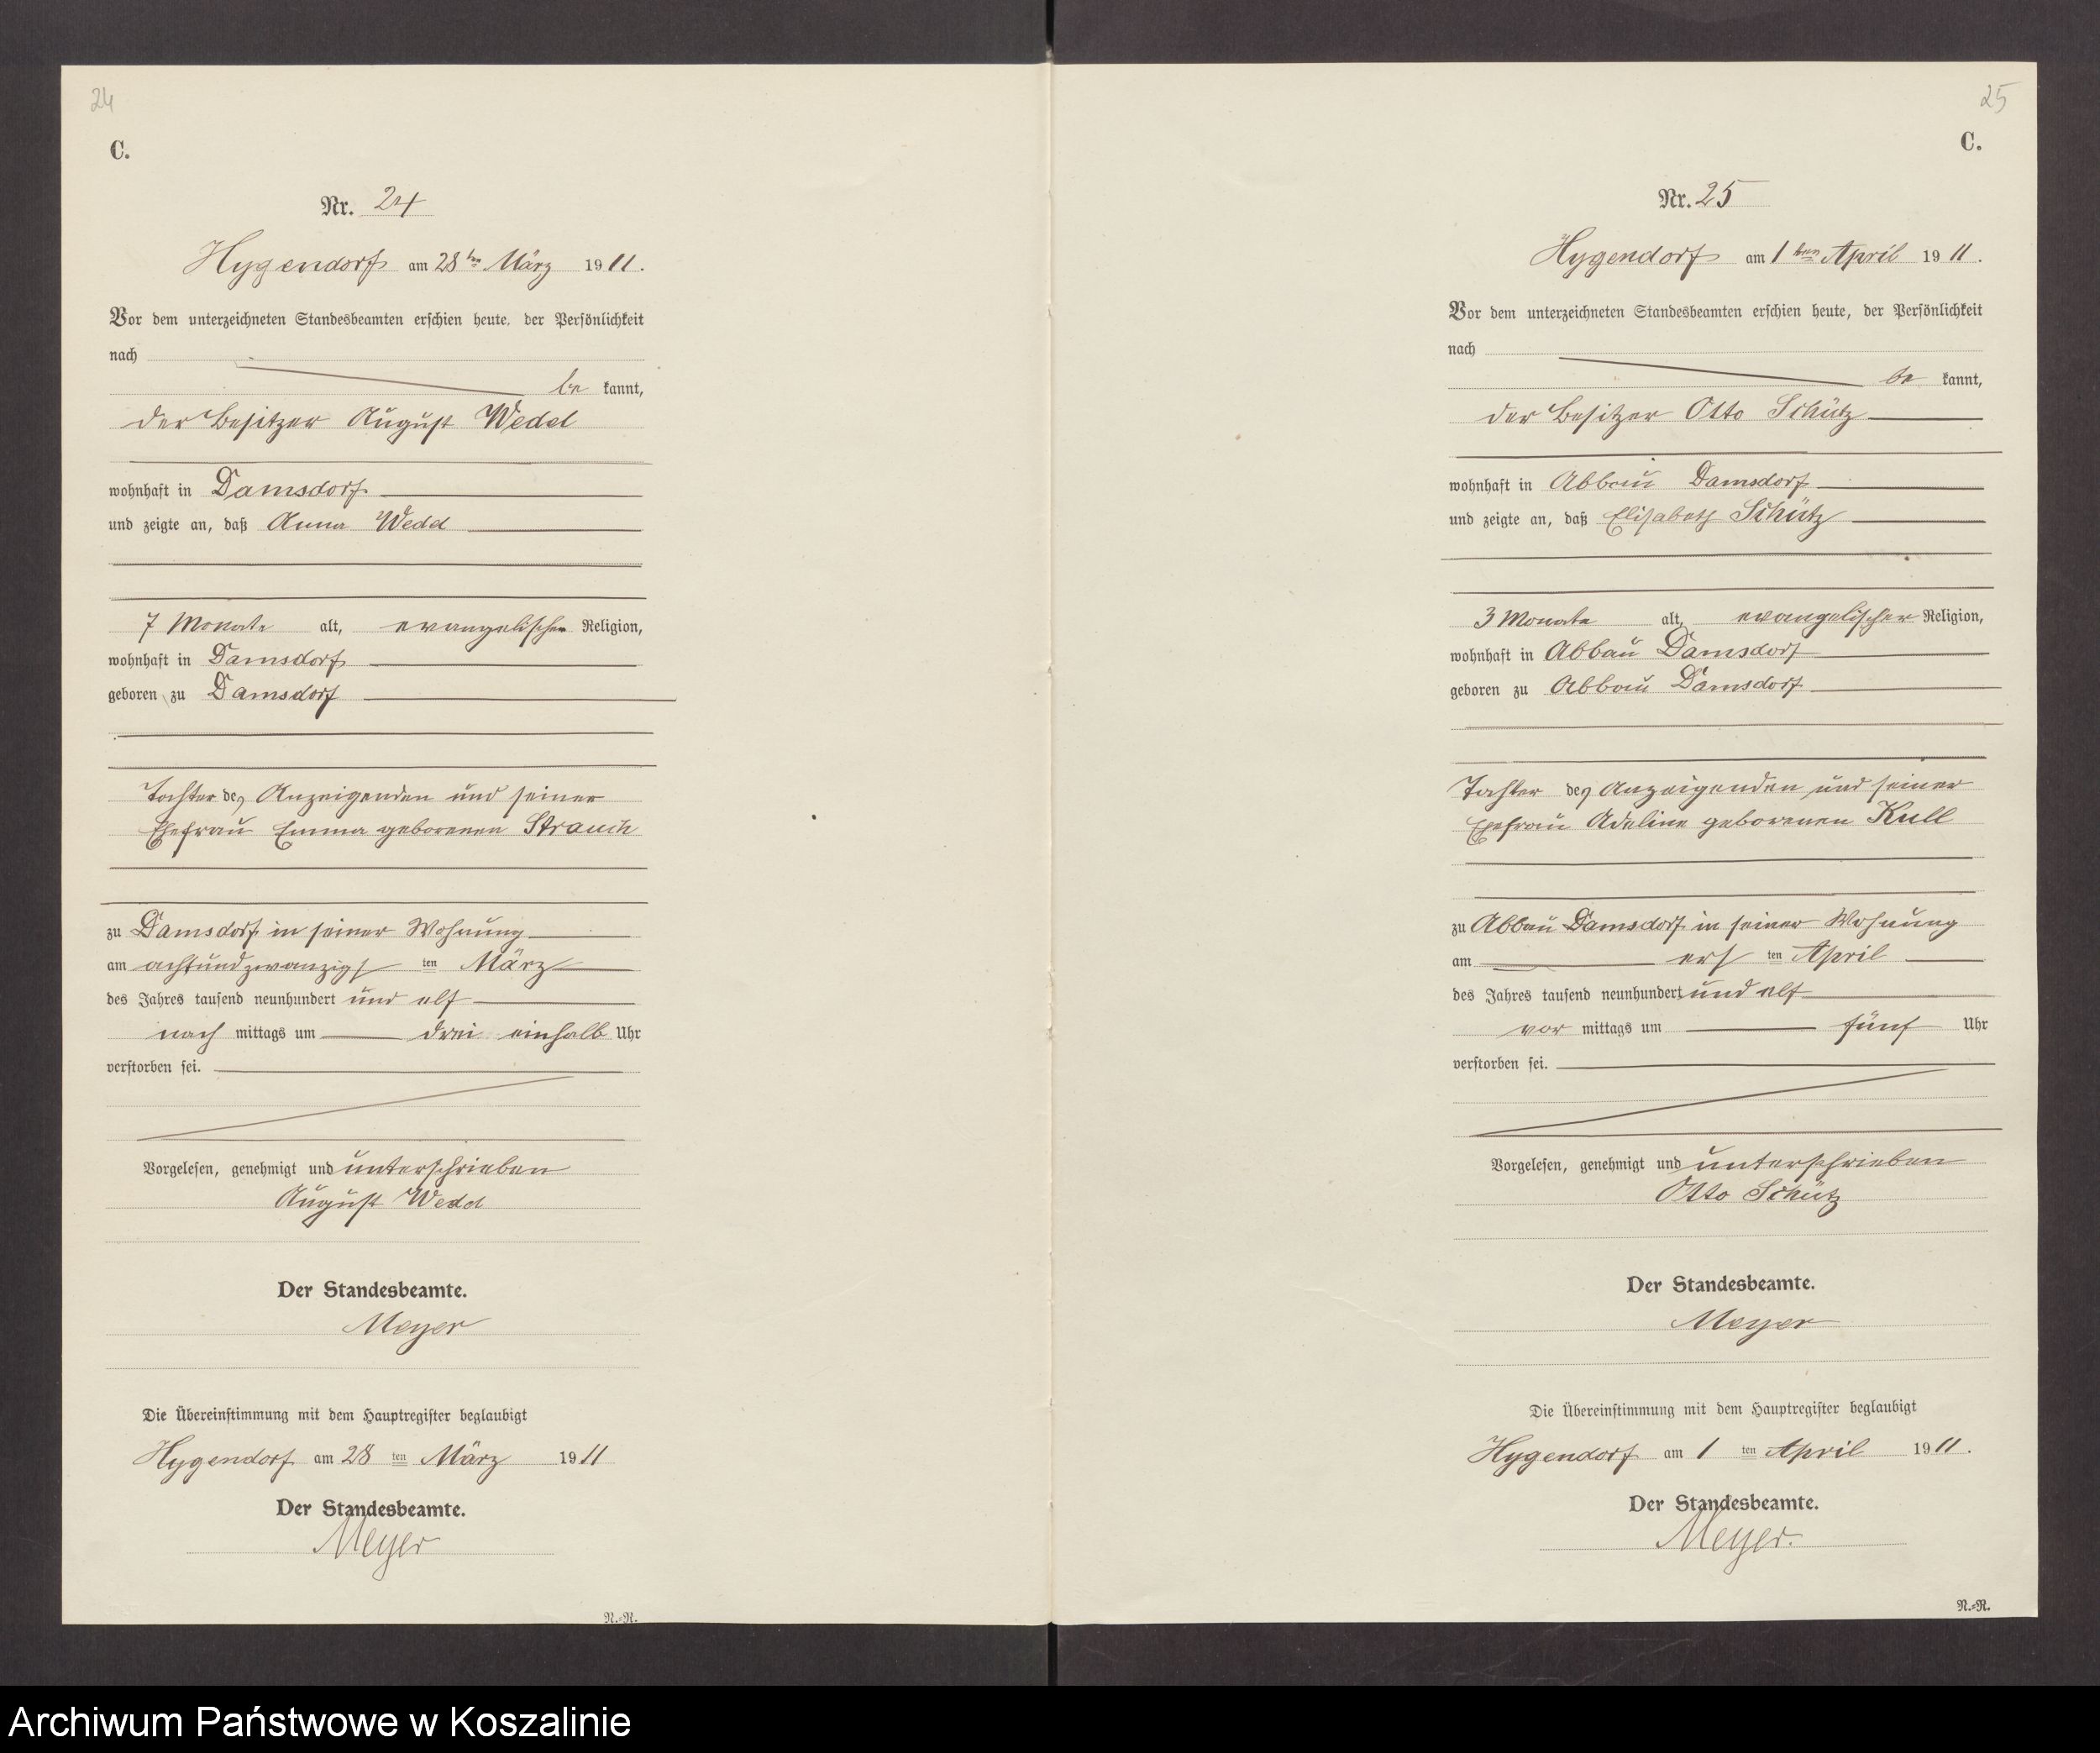 24
C.
Nr. 24
Hygendorf am 28ten März 1911.
Vor dem unterzeichneten Standesbeamten erschien heute, der Persönlichkeit
nach
be kannt,
der Besitzer August Wedel
wohnhaft in Damsdorf
und zeigte an, daß Anna Wedel
7 Monate alt, evangelischer Religion,
wohnhaft in Damsdorf
geboren zu Damsdorf
Tochter des Anzeigenden und seiner
Ehefrau Emma geborenen Strauch
zu Damsdorf in seiner Wohnung
am achtundzwanzigsten März
des Jahres tausend neunhundert und elf
nach mittags um drei einhalb Uhr
verstorben sei.
Vorgelesen, genehmigt und unterschrieben
August Wedel
Der Standesbeamte.
Meyer
Die Übereinstimmung mit dem Hauptregister beglaubigt
Hygendorf am 28 ten März 1911
Der Standesbeamte.
Meyer
N.=N.
25
C.
Nr. 25
Hygendorf am 1ten April 1911.
Vor dem unterzeichneten Standesbeamten erschien heute, der Persönlichkeit
nach
be kannt,
der Besitzer Otto Schütz
wohnhaft in Abbau Damsdorf
und zeigte an, daß Elisabeth Schütz
3 Monate alt, evangelischer Religion,
wohnhaft in Abbau Damsdorf
geboren zu Abbau Damsdorf
Tochter des Anzeigenden und seiner
Ehefrau Adeline geborenen Kull
zu Abbau Damsdorf in seiner Wohnung
am ersten April
des Jahres tausend neunhundert und elf
vor mittags um fünf Uhr
verstorben sei.
Vorgelesen, genehmigt und unterschrieben
Otto Schütz
Der Standesbeamte.
Meyer
Die Übereinstimmung mit dem Hauptregister beglaubigt
Hygendorf am 1 ten April 1911.
Der Standesbeamte.
Meyer.
N.=N.
Archiwum Państwowe w Koszalinie